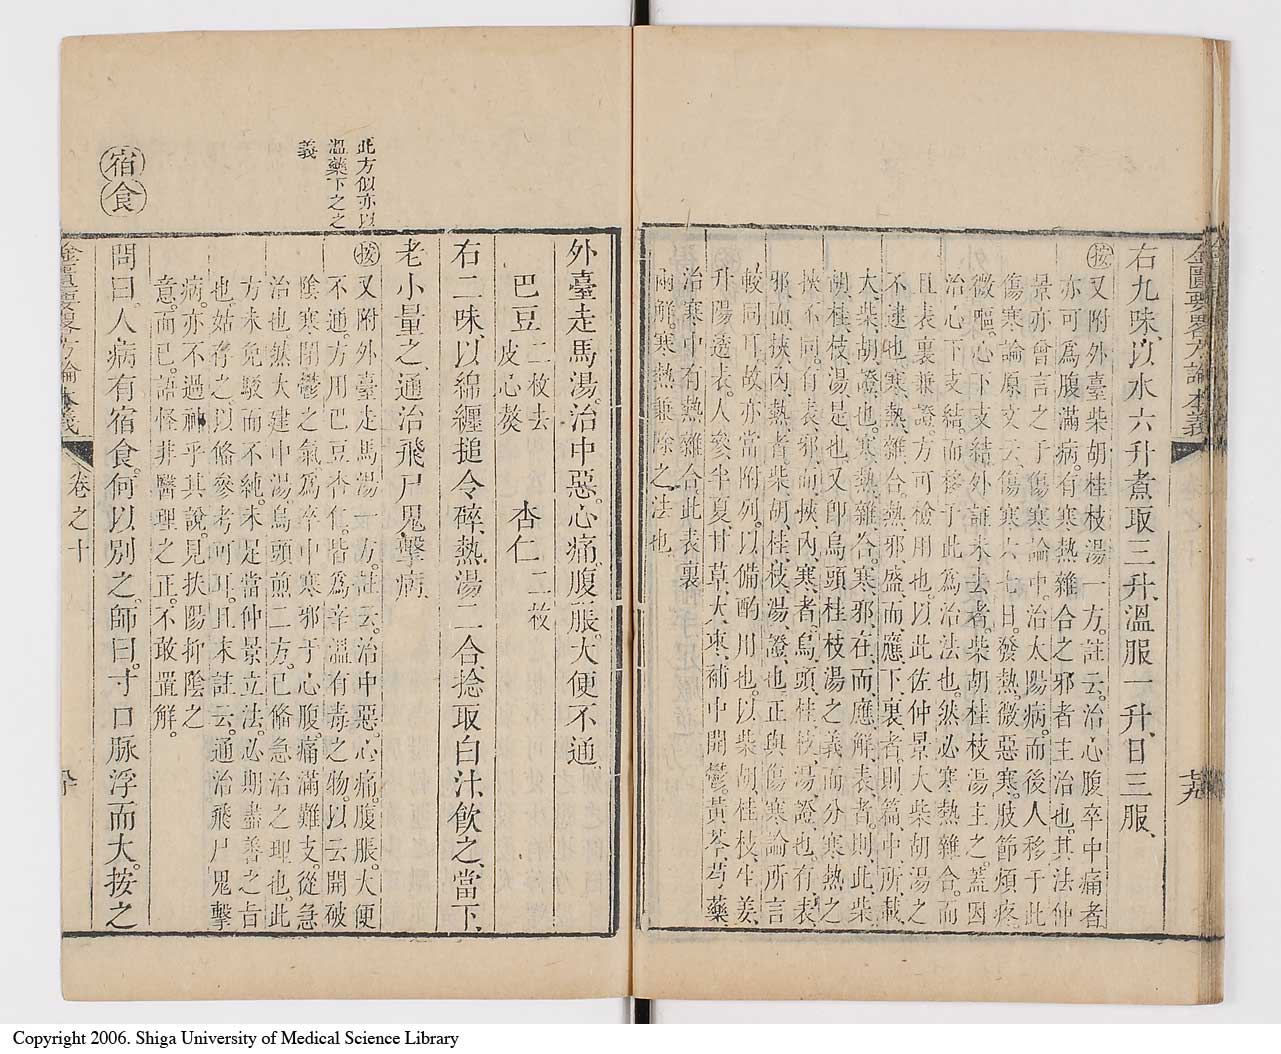 右九味、以水六升煮取三升、溫服一升、日三服、
按又附外臺柴胡桂枝湯一方。註云。治心腹卒中痛者
亦可為腹滿病。有寒熱雜合之邪者主治也。其法仲
景亦曾言之于傷寒論中。治太陽病。而後人移于此
傷寒論原文云。傷寒六七日。發熱。微惡寒。肢節煩疼
微嘔。心下支結。外証未去者。柴胡桂枝湯主之。蓋因
治心下支結。而移于此。為治法也。然必寒熱雜合。而
且表裏兼證。方可檢用也。以此佐仲景大柴胡湯之
不逮也。寒熱雜合。熱邪盛。而應下裏者。則篇中所載
大柴胡證也。寒熱雜合。寒邪在。而應解表者。則此柴
胡桂枝湯是也。又即烏頭桂枝湯之義。而分寒熱之
挾不同。有表邪而挾內寒者。烏頭桂枝湯證也。有表
邪而挾內熱者。柴胡桂枝湯證也。正與傷寒論所言
較同耳。故亦當附列。以備酌用也。以柴胡桂枝生姜
升陽透表。人參半夏甘草大棗補中開鬱。黃芩芍藥
治寒中有熱雜合。此表裏
兩解。寒熱兼除之法也。
金匱要畧方論本義
外臺走馬湯。治中惡。心痛。腹脹。大便不通
巴豆二枚去皮心熬 杏仁二枚
右二味、以綿纏搥令碎、熱湯二合、捻取白汁、飲之、當下、
老小量之、通治飛尸鬼擊病
此方似亦以
溫藥下之之
義
按又附外臺走馬湯一方。註云。治中惡。心痛。腹脹。大便
不通。方用巴豆杏仁。皆為辛溫有毒之物。以云開破
陰寒閉鬱之氣。為卒中寒邪于心腹。痛滿難支。從急
治也。然大建中湯烏頭煎二方。已備急治之理也。此
方未免駁而不純。未足當仲景立法。必期盡善之旨
也。姑存之以備參考可耳。且末註云。通治飛尸鬼擊
病。亦不過神乎其說。見扶陽抑陰之
意。而已。語怪非醫理之正。不敢置解。
宿食
問曰。人病有宿食。何以別之。師曰。寸口脉浮而大。按之
金匱要畧方論本義 卷之十